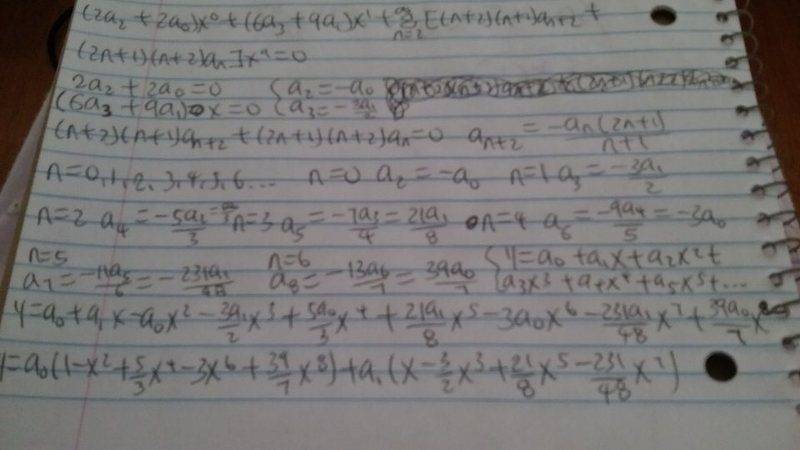 (2a₂+2a₀)x⁰+(6a₃+9a₁)x¹+∑ₙ₌₂[(n+2)(n+1)aₙ₊₂+
(2n+1)(n+2)aₙ]xⁿ=0
2a₂+2a₀=0 {a₂=-a₀
(6a₃+9a₁)x=0 {a₃=-3a₁/2
(n+2)(n+1)aₙ₊₂+(2n+1)(n+2)aₙ=0 aₙ₊₂=-aₙ(2n+1)/n+1
n=0,1,2,3,4,5,6... n=0 a₂=-a₀ n=1 a₃=-3a₁/2
n=2 a₄=-5a₂/3 n=3 a₅=-7a₃/4=21a₁/8 n=4 a₆=-9a₄/5=-3a₀
n=5 n=6 {y=a₀+a₁x+a₂x²+
a₇=-11a₅/6=-231a₁/48 a₈=-13a₆/7=39a₀/7 a₃x³+a₄x⁴+a₅x⁵+...
y=a₀+a₁x-a₀x²-3a₁/2x³+5a₀/3x⁴+21a₁/8x⁵-3a₀x⁶-231a₁/48x⁷+39a₀/7x⁸
y=a₀(1-x²+5/3x⁴-3x⁶+39/7x⁸)+a₁(x-3/2x³+21/8x⁵-231/48x⁷)